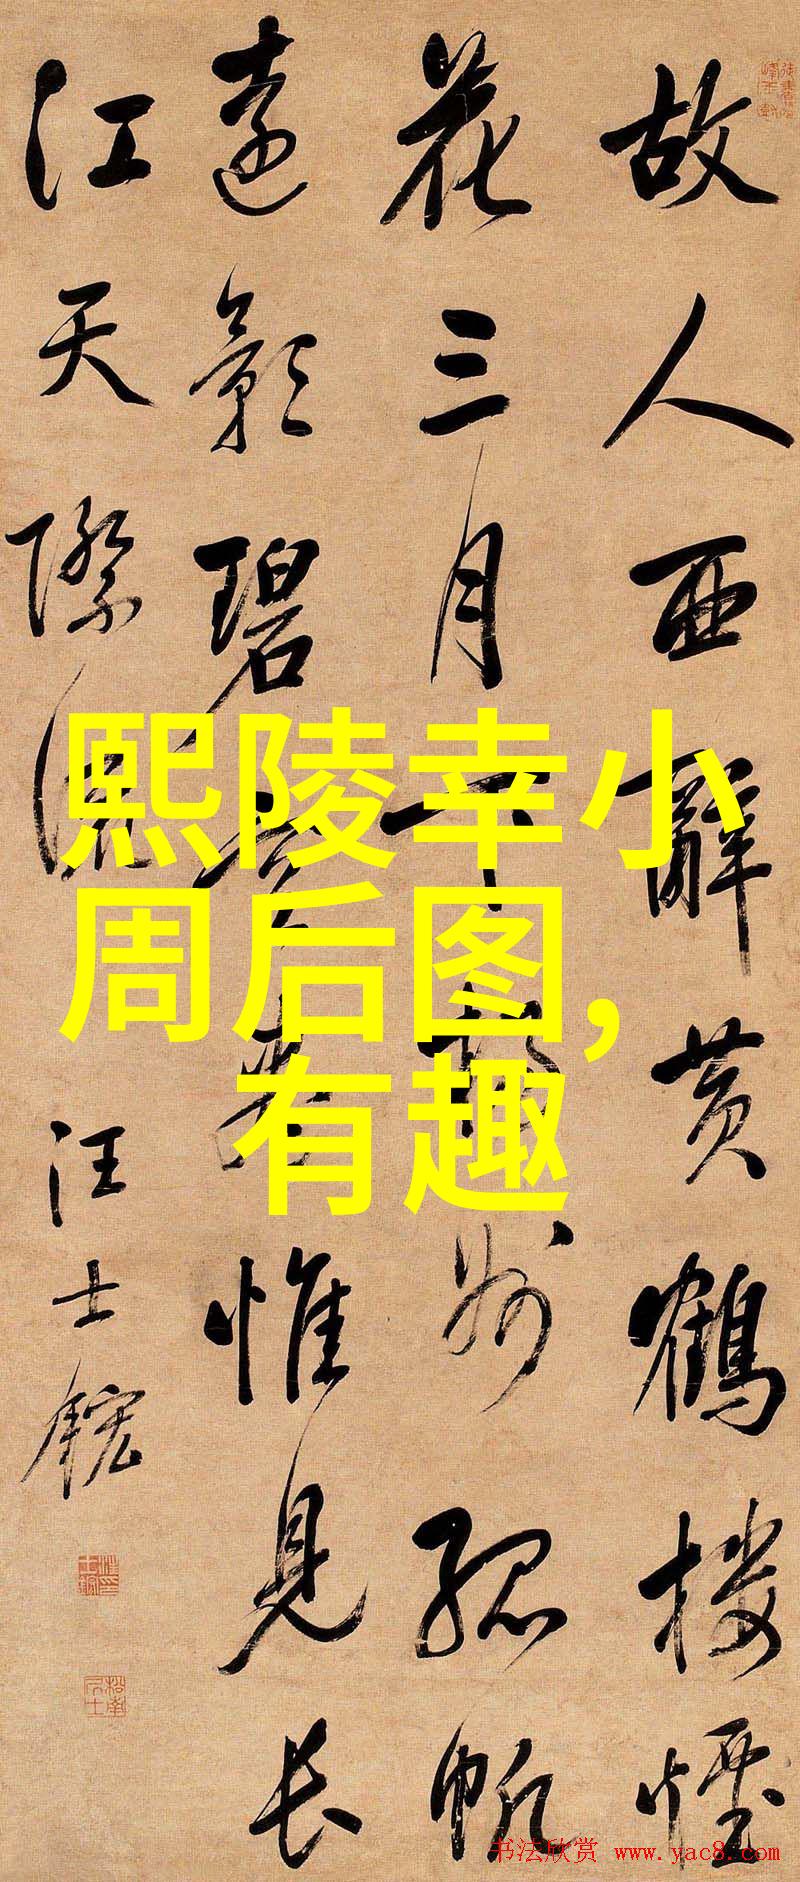 故人西辭黄鶴樓煙
花三月下揚州孤帆
遠影碧空盡惟見長
江天際流
汪士鋐
熙陵幸小
周后图,
有趣
书法欣赏 www.yac8.com